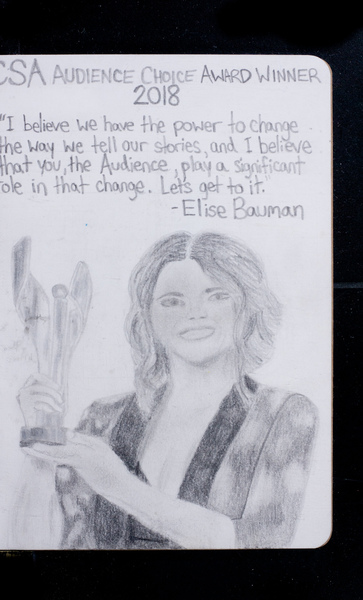 CSA AUDIENCE CHOICE AWARD WINNER
2018
"I believe we have the power to change
the way we tell our stories, and I believe
that you, the Audience, play a significant
role in that change. Let's get to it."
-Elise Bauman